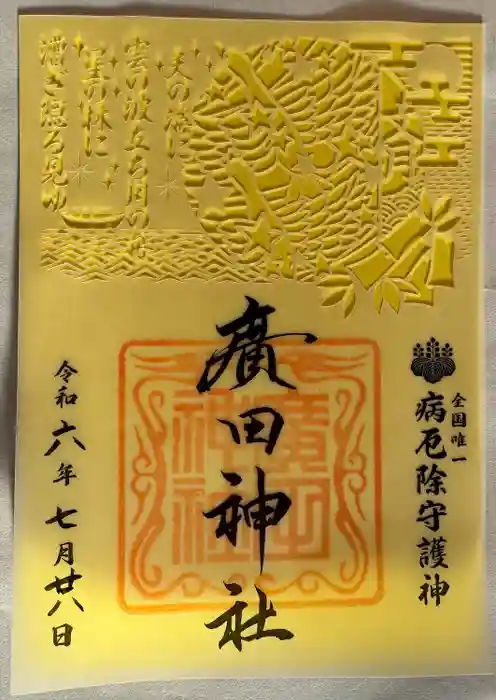 天の海に
雲の波立ち月の舟
星の林に
漕ぎ隠る見ゆ
全国唯一
病厄除守護神
廣田神社
廣田
神社
令和六年七月廿八日